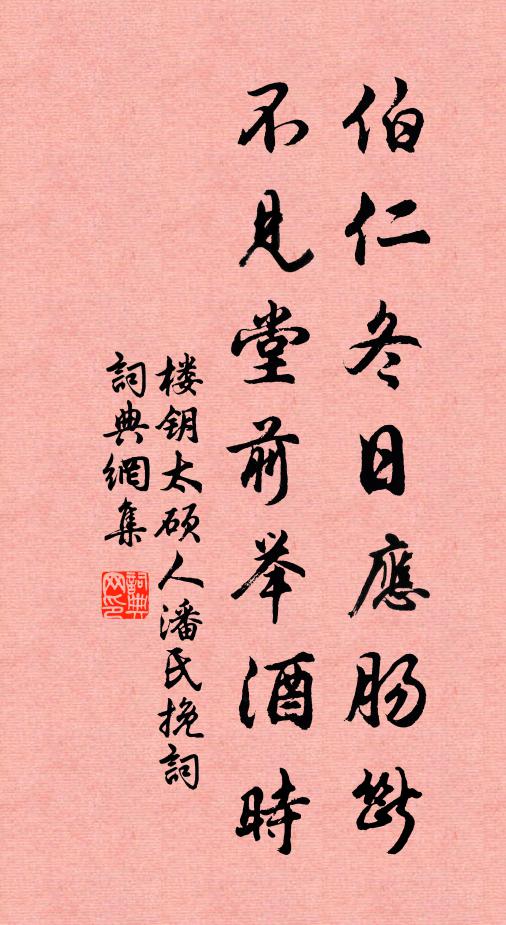 伯仁冬日應肠斷
不見堂前举酒時
楼钥太硕人潘氏挽詞
詞典網集
詞典網印